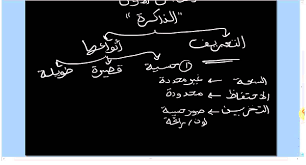 "الذاكرة"
التعريف    أنواعها
① حسية    قصيرة    طويلة
السعة ← غير محددة
الاحتفاظ ← محدودة
التحريف ← صور حسية
لون / رائحة